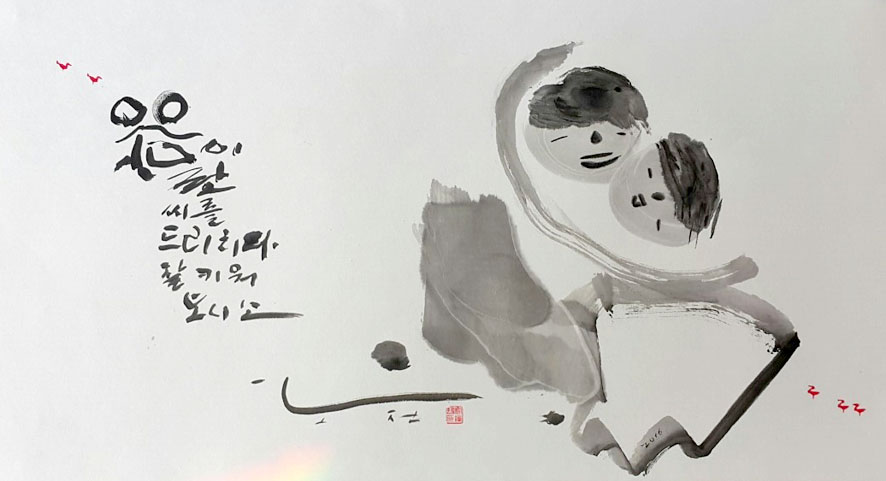 웃음이
란
씨를
드리리다.
잘 키워
보시오
2016